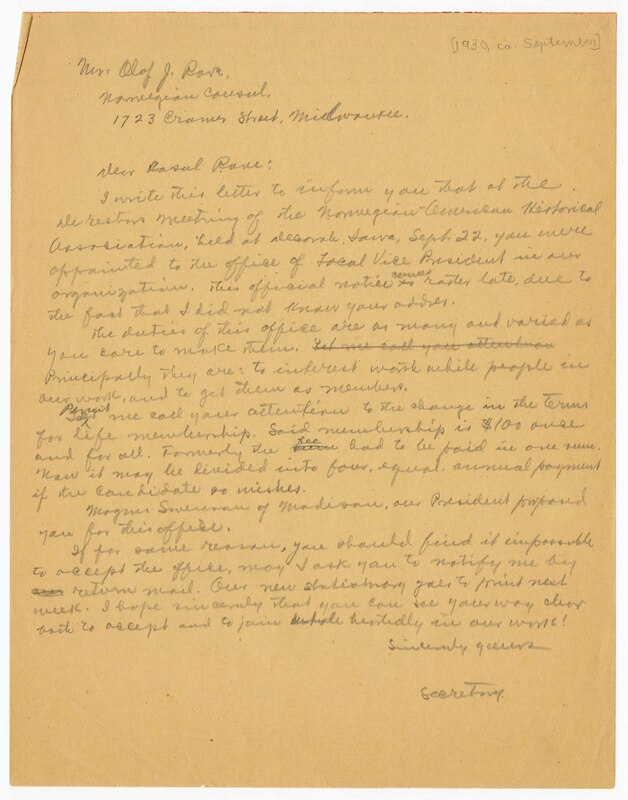 [1930, ca. September]
Mr. Olof J. Rove,
Norwegian Consul,
1723 Cramer Street, Milwaukee.
Dear Consul Rove:
I write this letter to inform you that at the
directors meeting of the Norwegian-American Historical
Association, held at Decorah, Iowa, Sept. 22, you were
appointed to the office of Local Vice President in our
organization. This official notice comes rather late, due to
the fact that I did not know your addres.
The duties of this office are as many and varied as
you care to make them. Let me call your attention
Principally they are: to interest worth while people in
our work, and to get them as members.
Permit me call your attention to the change in the terms
for life membership. Said membership is $100 once
and for all. Formerly the fee had to be paid in one sum.
Now it may be divided into four, equal, annual payment
if the candidate so wishes.
Magnus Swenson of Madison, our President proposed
you for this office.
If for some reason, you should find it impossible
to accept the office, may I ask you to notify me by
return mail. Our new stationary goes to print next
week. I hope sincerely that you can see your way clear
both to accept and to join heartedly in our work!
Sincerely yours
Secretary.